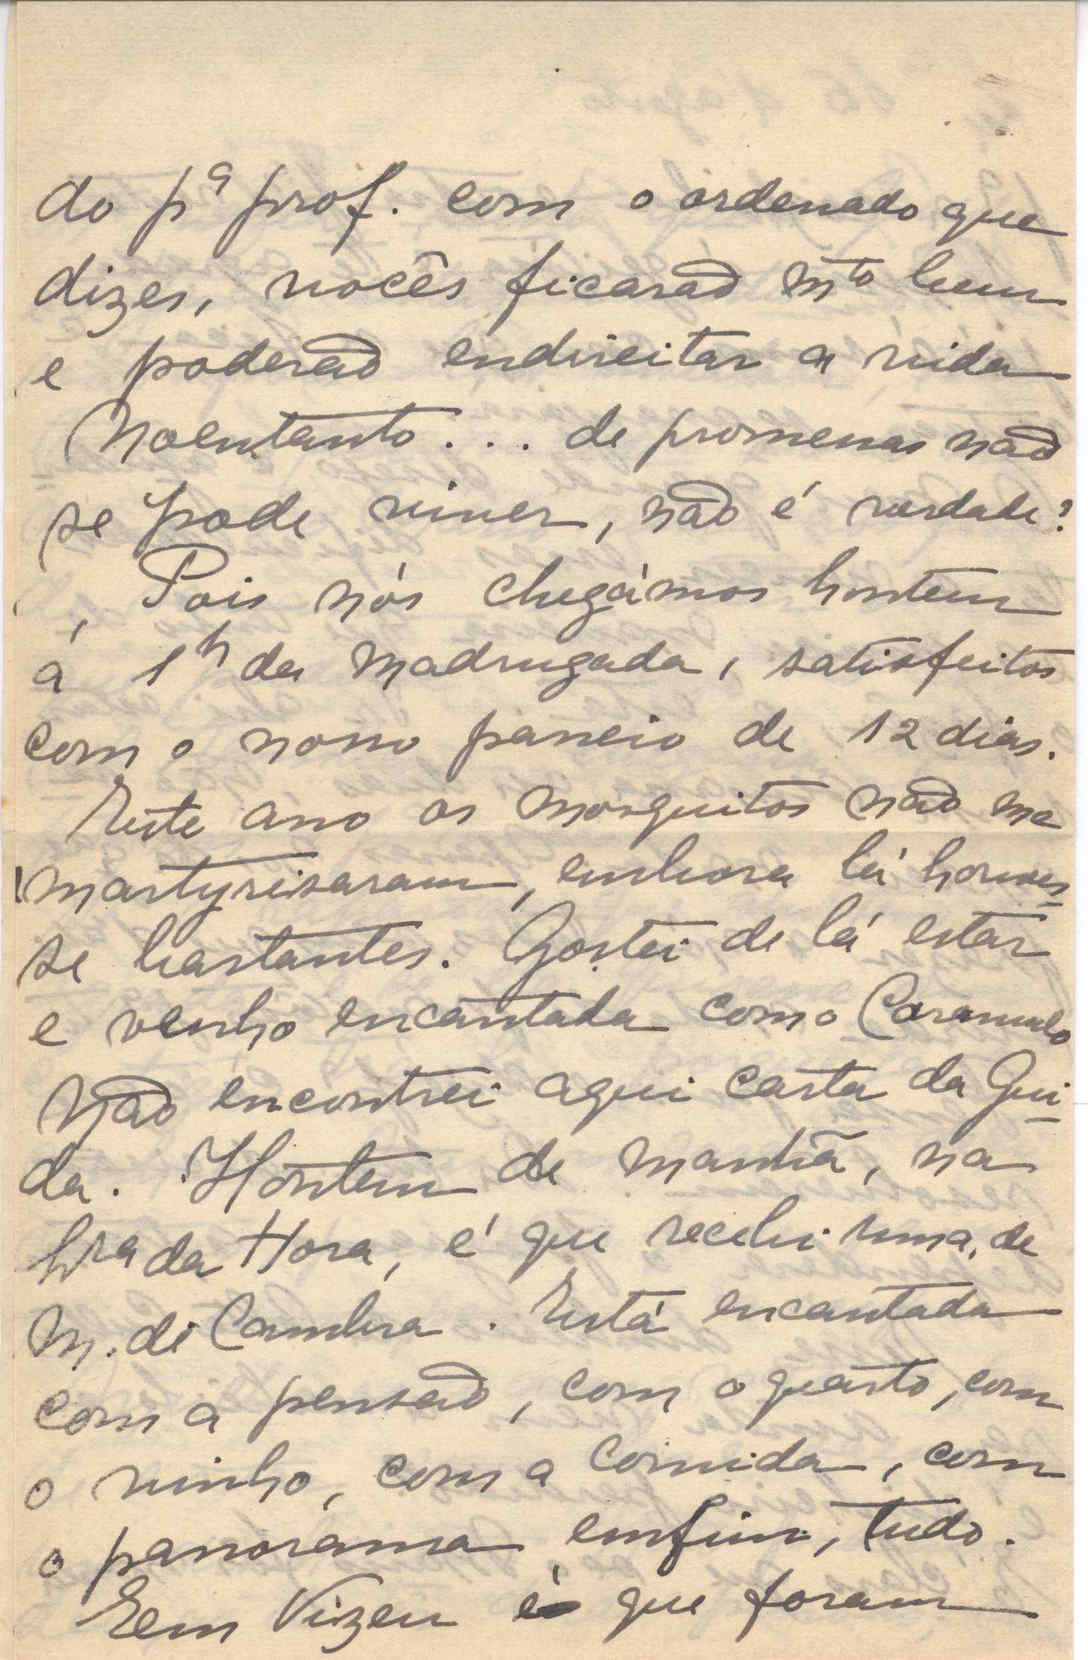 do pª prof. com o ordenado que
dizes, vocês ficarão mto bem
e poderão endireitar a vida
Noentanto... de promessas não
se pode viver, não é verdade?
Pois nós chegámos hontem
á 1h da madrugada, satisfeitos
com o nosso passeio de 12 dias.
Este ano os mosquitos não me
martyrisaram, embora lá houves-
se bastantes. Gostei de lá estar
e venho encantada com o Caramulo
Não encontrei aqui carta da Gui-
da. Hontem de manhã, na
Sra da Hora, é que recebi uma, de
M. de Cambra. Está encantada
com a pensão, com o quarto, com
o vinho, com a comida, com
o panorama emfim, tudo.
Em Vizeu é que foram